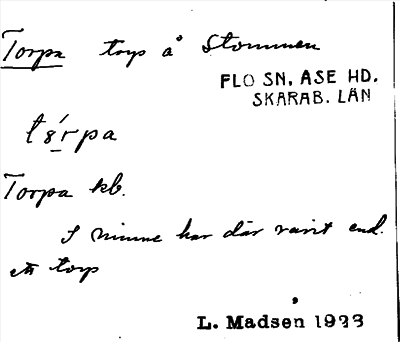 Torpa torp å Stommen
FLO SN, ÅSE HD.
SKARAB. LÄN
tórpa
Torpa kb.
I minne har där varit end.
ett torp
L. Madsen 1933